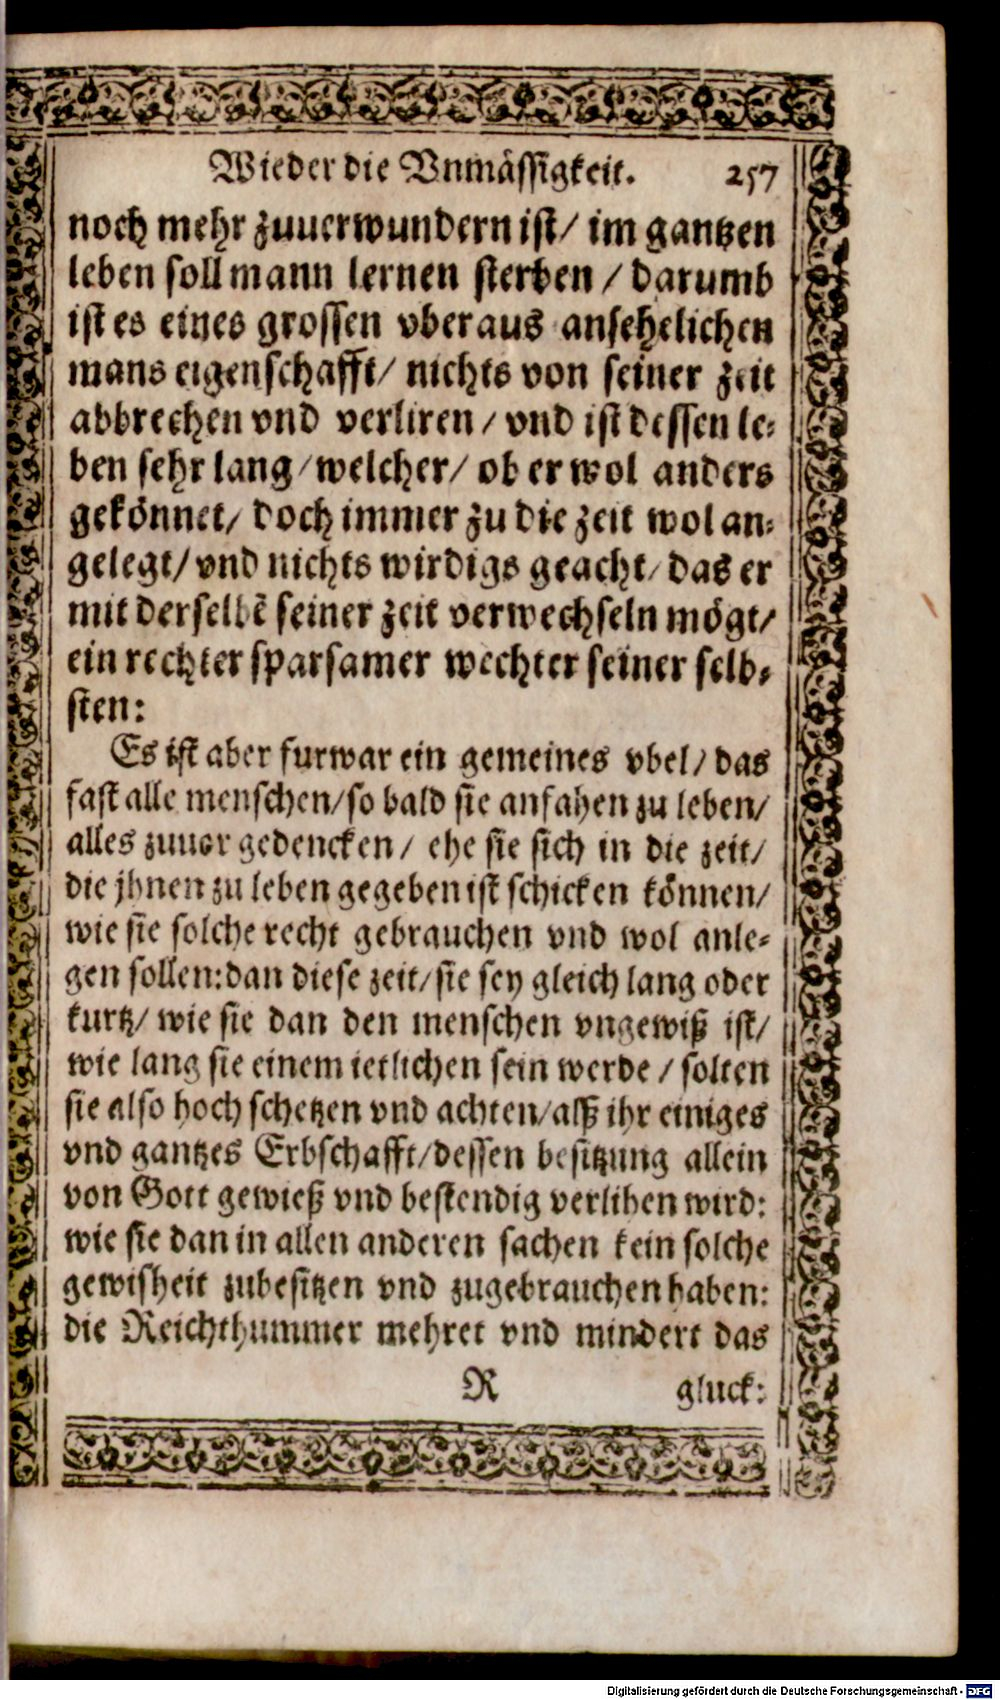 Wieder die Vnmässigkeit. 257
noch mehr zuuerwundern ist/ im gantzen
leben soll mann lernen sterben / darumb
ist es eines grossen vberaus ansehelichen
mans eigenschafft/ nichts von seiner zeit
abbrechen vnd verliren / vnd ist dessen le-
ben sehr lang/welcher/ ob er wol anders
gekönnet/ doch immer zu die zeit wol an-
gelegt/ vnd nichts wirdigs geacht/ das er
mit derselbē seiner zeit verwechseln mögt/
ein rechter sparsamer wechter seiner selb-
sten:
Es ist aber furwar ein gemeines vbel/ das
fast alle menschen/so bald sie anfahen zu leben/
alles zuuor gedencken/ ehe sie sich in die zeit/
die jhnen zu leben gegeben ist schicken können/
wie sie solche recht gebrauchen vnd wol anle-
gen sollen:dan diese zeit/sie sey gleich lang oder
kurtz/ wie sie dan den menschen vngewiß ist/
wie lang sie einem ietlichen sein werde / solten
sie also hoch schetzen vnd achten/alß ihr einiges
vnd gantzes Erbschafft/dessen besitzung allein
von Gott gewieß vnd bestendig verlihen wird:
wie sie dan in allen anderen sachen kein solche
gewisheit zubesitzen vnd zugebrauchen haben:
die Reichthummer mehret vnd mindert das
R gluck:
Digitalisierung gefördert durch die Deutsche Forschungsgemeinschaft - DFG